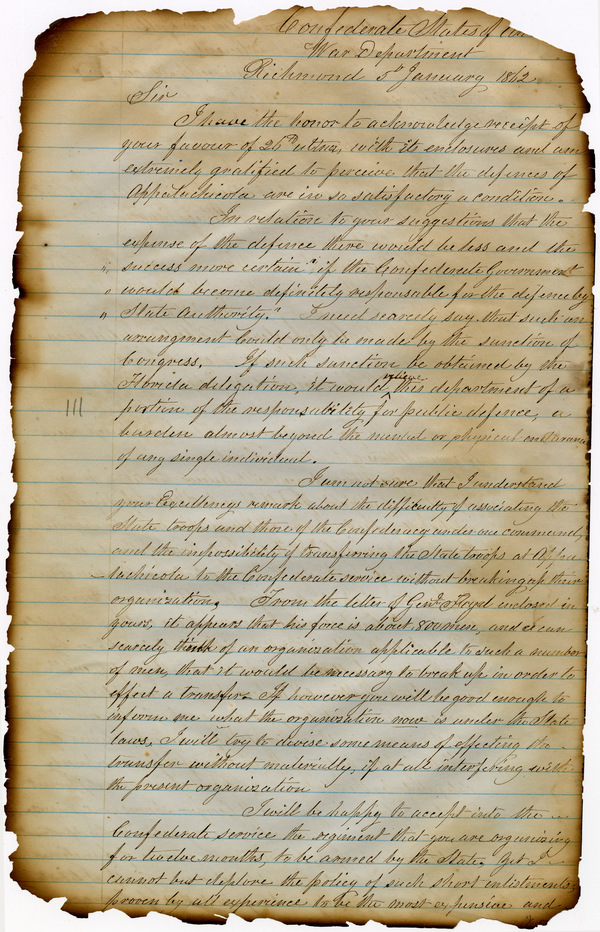 Confederate States of am
War Department
Richmond 5th January 1862
Sir
I have the honor to acknowledge receipt of
your favour of 26th ultra, with its enclosures and am
extremely gratified to perceive that the defences of
Appalachicola are in so satisfactory a condition.
In relation to your suggestions that the
expense of the defence there would be less and the
" success more certain " if the Confederate Government
" would become definitely responsable for the defence by
" State Authority." I need scarcely say that such an
arrangment could only be made by the sanction of
Congress. If such sanction be obtained by the
Florida diligation, it would relieve this department of a
portion of the responsability for public defence, a
burden almost beyond the mental or physical
of any single individual.
I am not sure that I understand
your Excellencys remark about the difficulty of associating the
State troops and those of the Confederacy under one command,
and the impossibility of transferring the State troops at Appa
lachicola to the Confederate service without breaking up their
organization. From the letter of Genl Floyd enclosed in
yours, it appears that his force is about 800 men, and I can
scarcely think of an organization applicable to such a number
of men, that it would be necessary to break up in order to
effect a transfer. If however you will be good enough to
inform me what the organization now is under the State
laws, I will try to devise some means of effecting the
transfer without materially, if at all interfering with
the present organization
I will be happy to accept into the
Confederate service the regiment that you are organizing
for twelve months, to be armed by the State. Yet I
cannot but deplore the policy of such short enlistments
proven by all experience to be the most expensive and
111